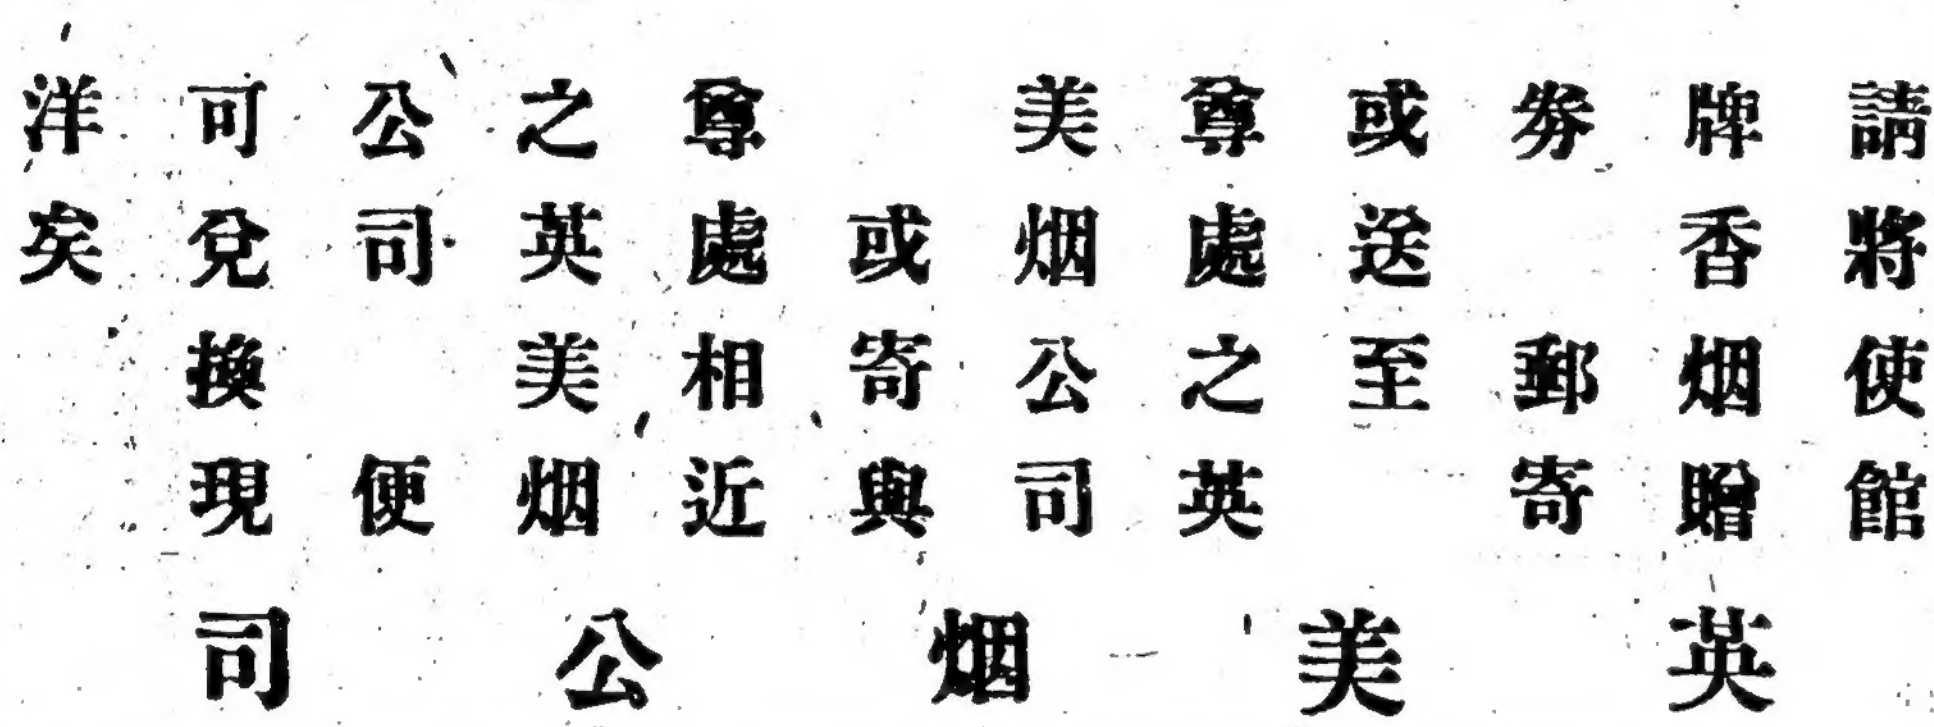 請將使館
牌香烟贈
券 郵寄
或送至
尊處之英
美烟公司
或寄與
尊處相近
之英美烟
公司 便
可兌換現
洋矣
英美烟公司